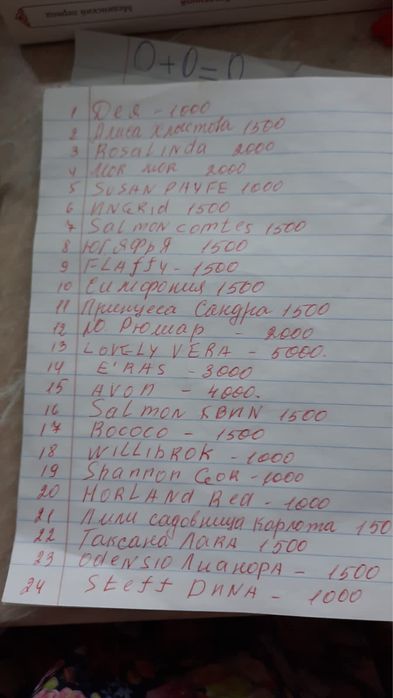 Медицинский период
0+0=0
1 Дея - 1000
2 Алиса Хлыстова 1500
3 Rosalinda 2000
4 Мок мок 2000
5 SUSAN PAYFE 1000
6 INGRID 1500
7 Salmon comtes 1500
8 1500
9 FLAffy - 1500
10 Симфония 1500
11 Принцеса Сандра 1500
12 Ло Рюмар - 2000
13 LOVELY VERA - 5000.
14 E'RAS - 3000
15 AVON - 4000.
16 Salmon KBNN 1500
17 Rococo - 1500
18 WILLIBROK - 1000
19 Shannon Geor - 1000
20 HORLAND Red - 1000
21 Лили садовница Карлота 150
22 Таксана Лара 1500
23 Odensio Лианора - 1500
24 Steff Дина - 1000